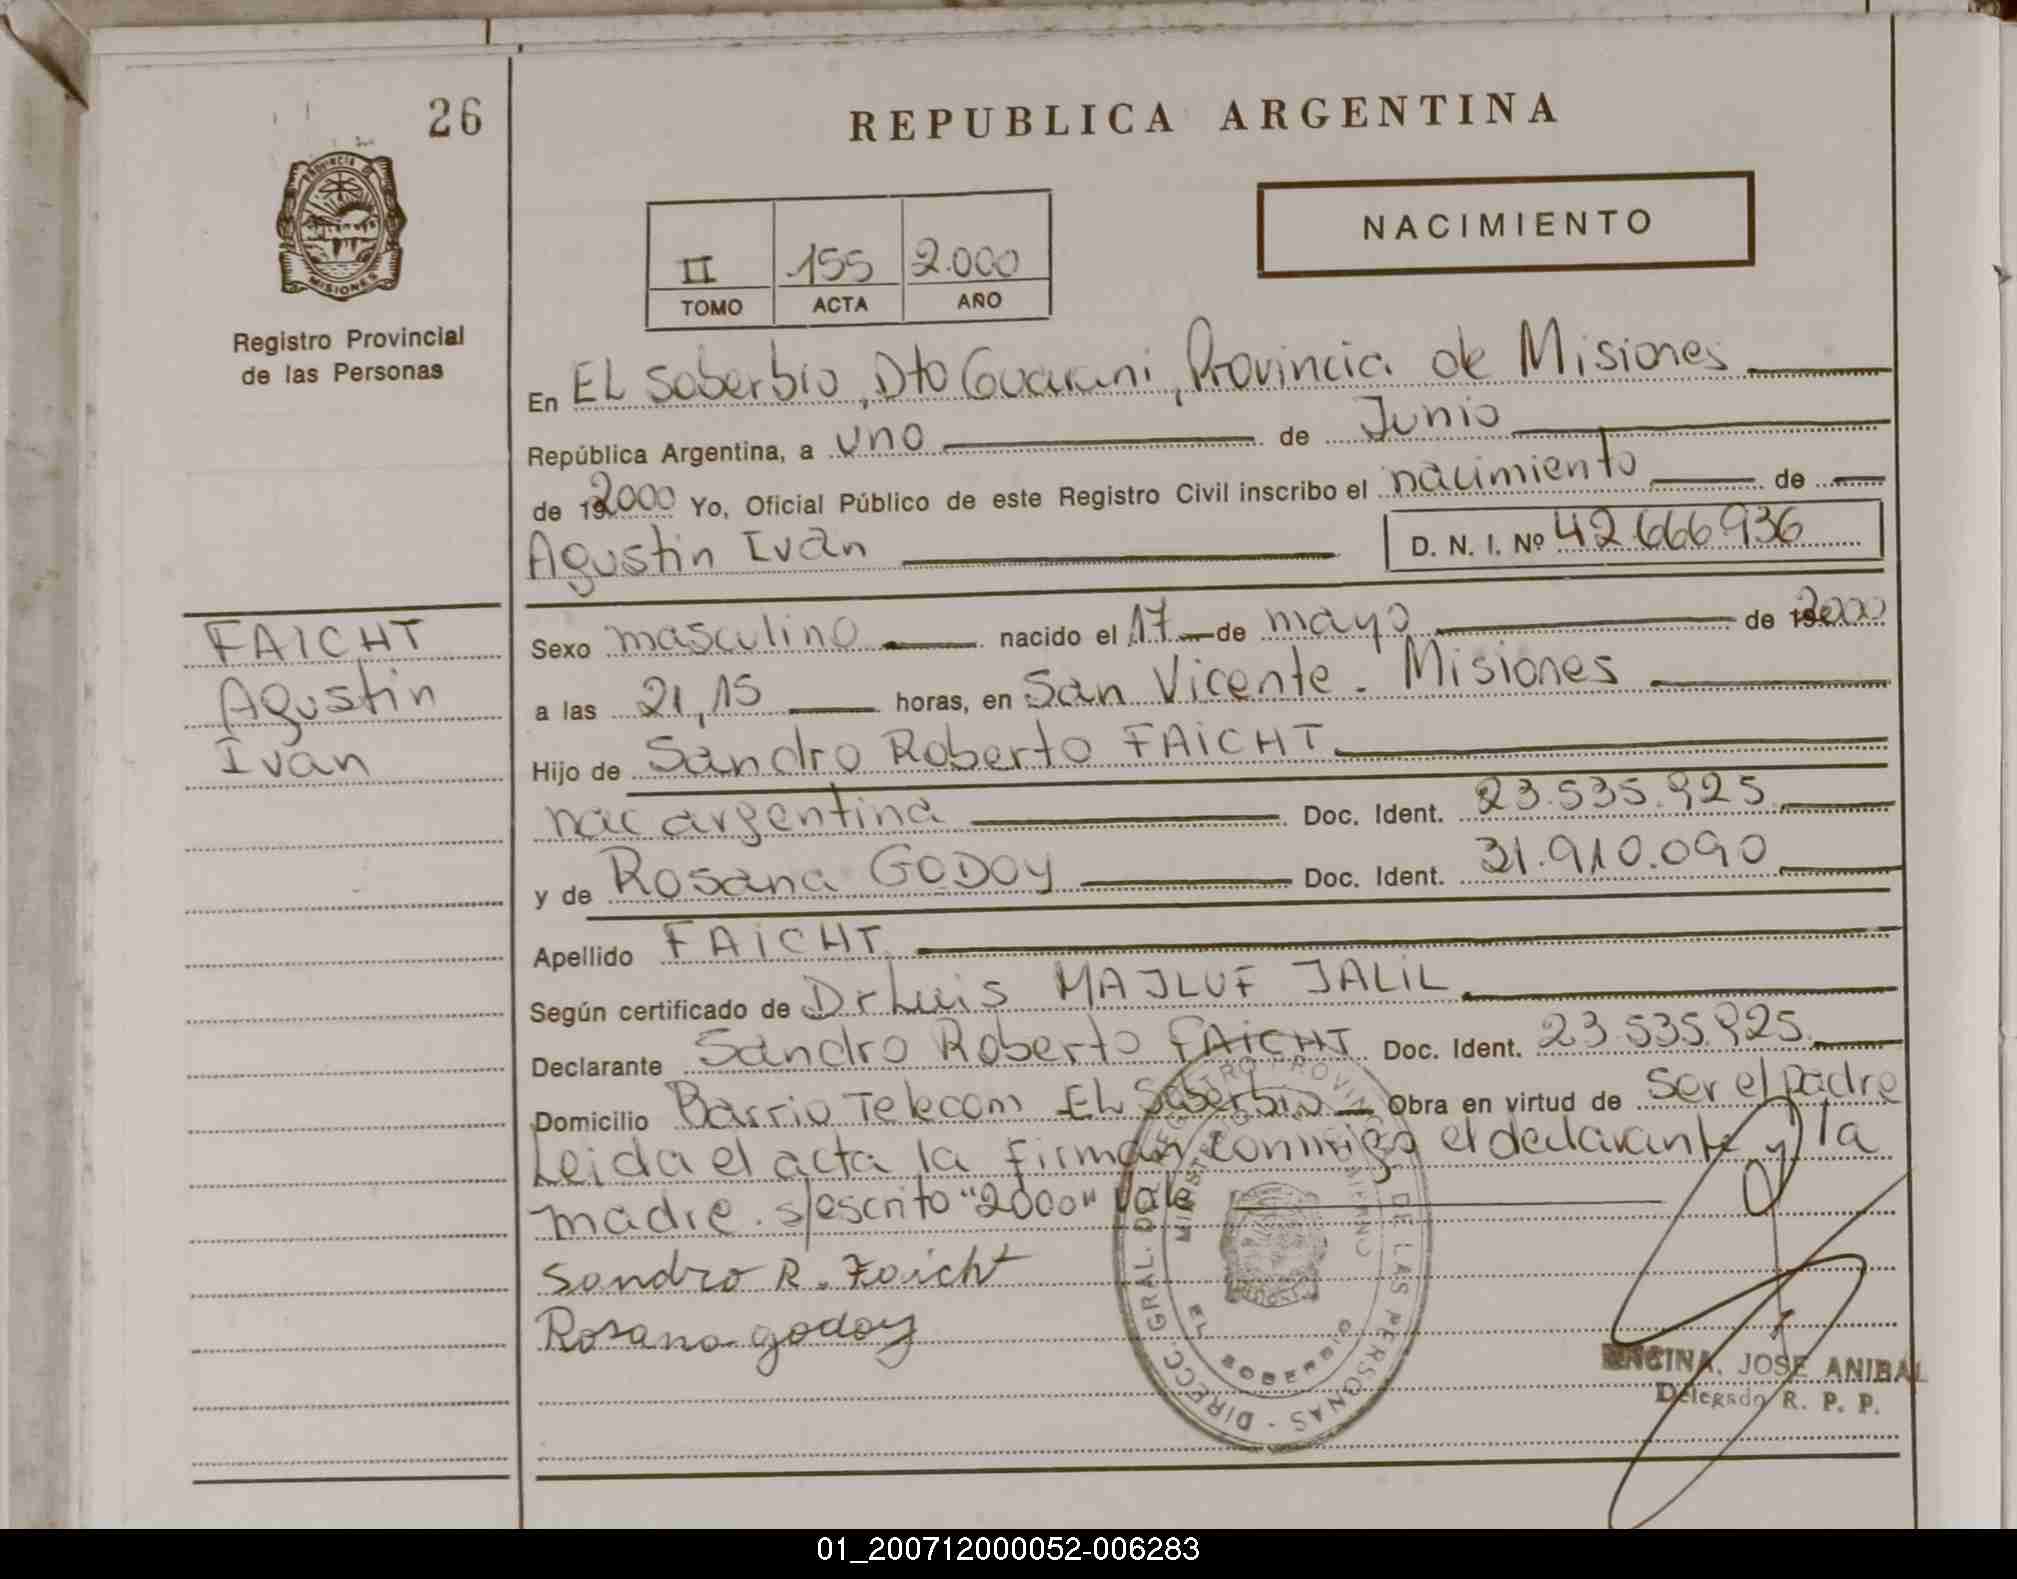 26
REPUBLICA ARGENTINA
PROVINCIA DE
MISIONES
Registro Provincial
de las Personas
II 155 2.000
TOMO ACTA AÑO
NACIMIENTO
En EL Soberbio, Dto Guarani, Provincia de Misiones
República Argentina, a uno de Junio
de 192000 Yo, Oficial Público de este Registro Civil inscribo el nacimiento de
Agustin Iván D. N. I. Nº 42.666.936
FAICHT
Agustin
Iván
Sexo masculino nacido el 17 de mayo de 192000
a las 21,15 horas, en San Vicente - Misiones
Hijo de Sandro Roberto FAICHT
nac argentina Doc. Ident. 23.535.925
y de Rosana GODOY Doc. Ident. 31.910.090
Apellido FAICHT
Según certificado de Dr Luis MAJLUF JALIL
Declarante Sandro Roberto FAICHT Doc. Ident. 23.535.925
Domicilio Barrio Telecom EL Soberbio Obra en virtud de ser el padre
Leida el acta la firman conmigo el declarante y la
madre. s/escrito "2000" Vale
Sandro R. Faicht
Rosana godoy
DIRECC. GRAL. DEL REGISTRO PROVINCIAL DE LAS PERSONAS
EL SOBERBIO
ENCINA, JOSE ANIBAL
Delegado R. P. P.
01_200712000052-006283